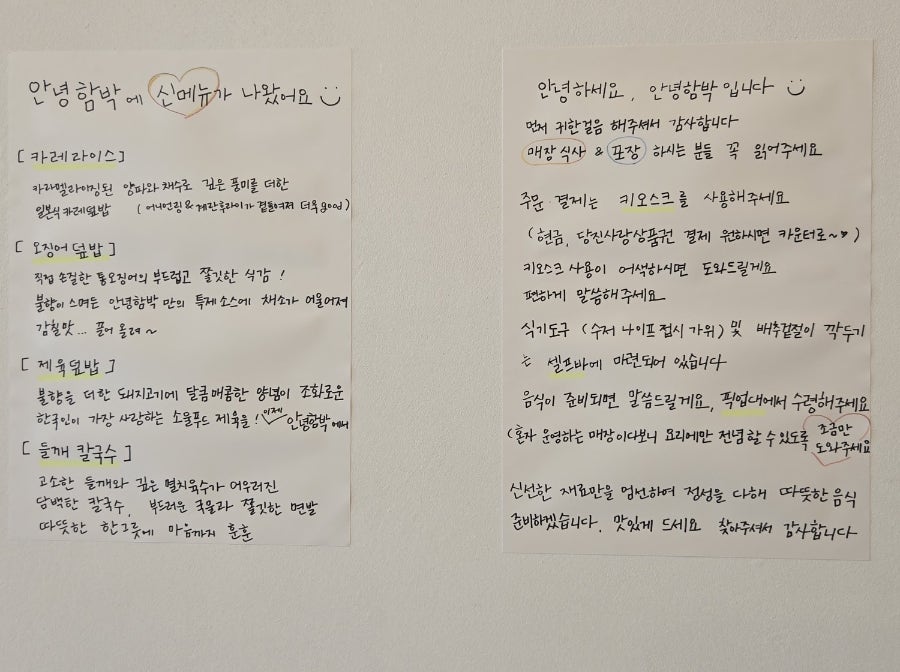 안녕함박에 신메뉴가 나왔어요
[카레라이스]
카라멜라이징된 양파와 채수로 깊은 풍미를 더한
일본식카레덮밥 (어니언링&계란후라이가 곁들여져 더욱good)
[오징어덮밥]
직접 손질한 통오징어의 부드럽고 쫄깃한 식감!
불향이 스며든 안녕함박 만의 특제소스에 채소가 어울어져
감칠맛... 끌어올려~
[제육덮밥]
불향을 더한 돼지고기에 달콤매콤한 양념이 조화로운
한국인이 가장 사랑하는 소울푸드 제육을! 이제 안녕함박에서
[들깨 칼국수]
고소한 들깨와 깊은 멸치육수가 어우러진
담백한 칼국수, 부드러운 국물과 쫄깃한 면발
따뜻한 한그릇에 마음까지 훈훈
안녕하세요, 안녕함박입니다
먼저 귀한걸음 해주셔서 감사합니다
매장식사 & 포장 하시는 분들 꼭 읽어주세요
주문·결제는 키오스크를 사용해주세요
(현금, 당진사랑상품권 결제 원하시면 카운터로~♥)
키오스크 사용이 어색하시면 도와드릴게요
편하게 말씀해주세요
식기도구 (수저 나이프 접시 가위) 및 배추겉절이 깍두기
는 셀프바에 마련되어 있습니다
음식이 준비되면 말씀드릴게요, 픽업대에서 수령해주세요
(혼자 운영하는 매장이다보니 요리에만 전념할 수 있도록 조금만
도와주세요
신선한 재료만을 엄선하여 정성을 다해 따뜻한 음식
준비하겠습니다. 맛있게 드세요 찾아주셔서 감사합니다